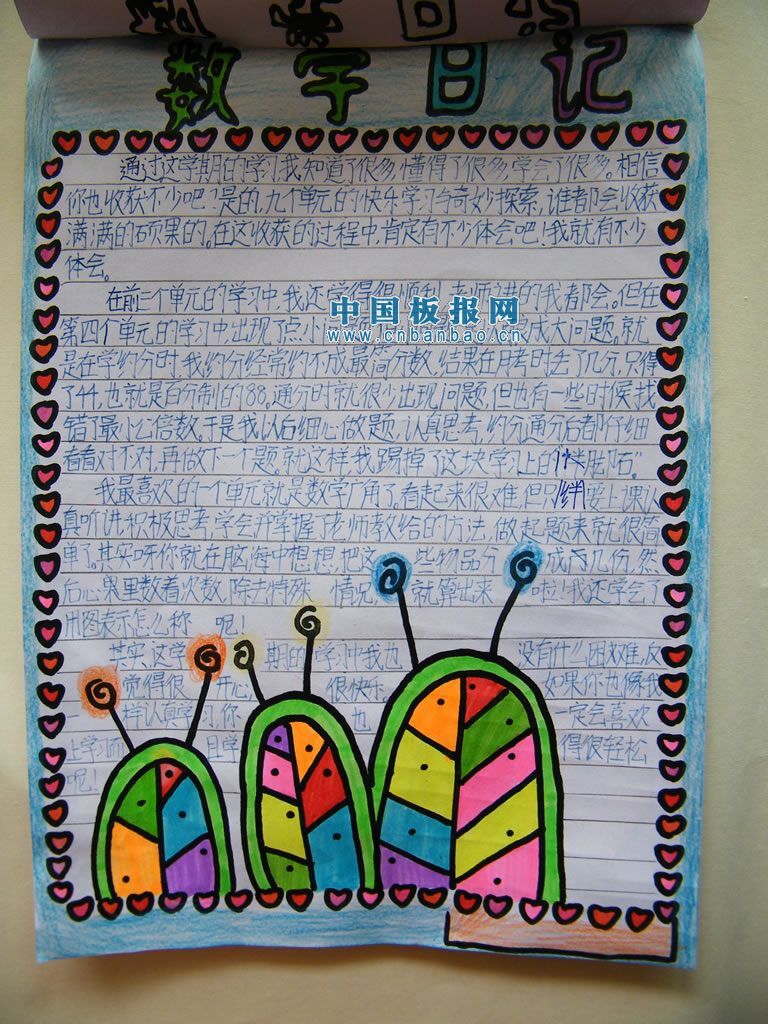 数学日记
通过这学期的学习我知道了很多,懂得了很多,学会了很多。相信
你也收获不少吧?是的,九个单元的快乐学习与奇妙探索,谁都会收获
满满的硕果的。在这收获的过程中,肯定有不少体会吧!我就有不少
体会。
在前三个单元的学习中,我还学得很顺利,老师讲的我都会。但在
中国板报网
www.cnbanbao.cn
第四个单元的学习中出现了点小 成大问题,就
是在学约分时,我约分经常约不成最简分数,结果在月考时丢了几分,只得
了44,也就是百分制的88。通分时就很少出现问题,但也有一些时候找
错了最小公倍数。于是我以后细心做题,认真思考,约分通分后都仔细
看看对不对,再做下一个题。就这样,我踢掉了这块学习上的 脚石”
我最喜欢的一个单元就是数学广角了,看起来很难,但只 要上课认
真听讲,积极思考,学会并掌握了老师教给的方法,做起题来就很简
单了。其实呀,你就在脑海中想想,把这 些物品分 成了几份,然
后心里数着次数,除去特殊 情况, 就算出来 啦!我还学会了
用图表示怎么称 呢!
其实,这学 期的学习中我也 没有什么困难,反
觉得很 开心, 很快乐 如果你也像我
一 样认真学习,你 也 一定会喜欢
上学习 且学 得很轻松
呢!